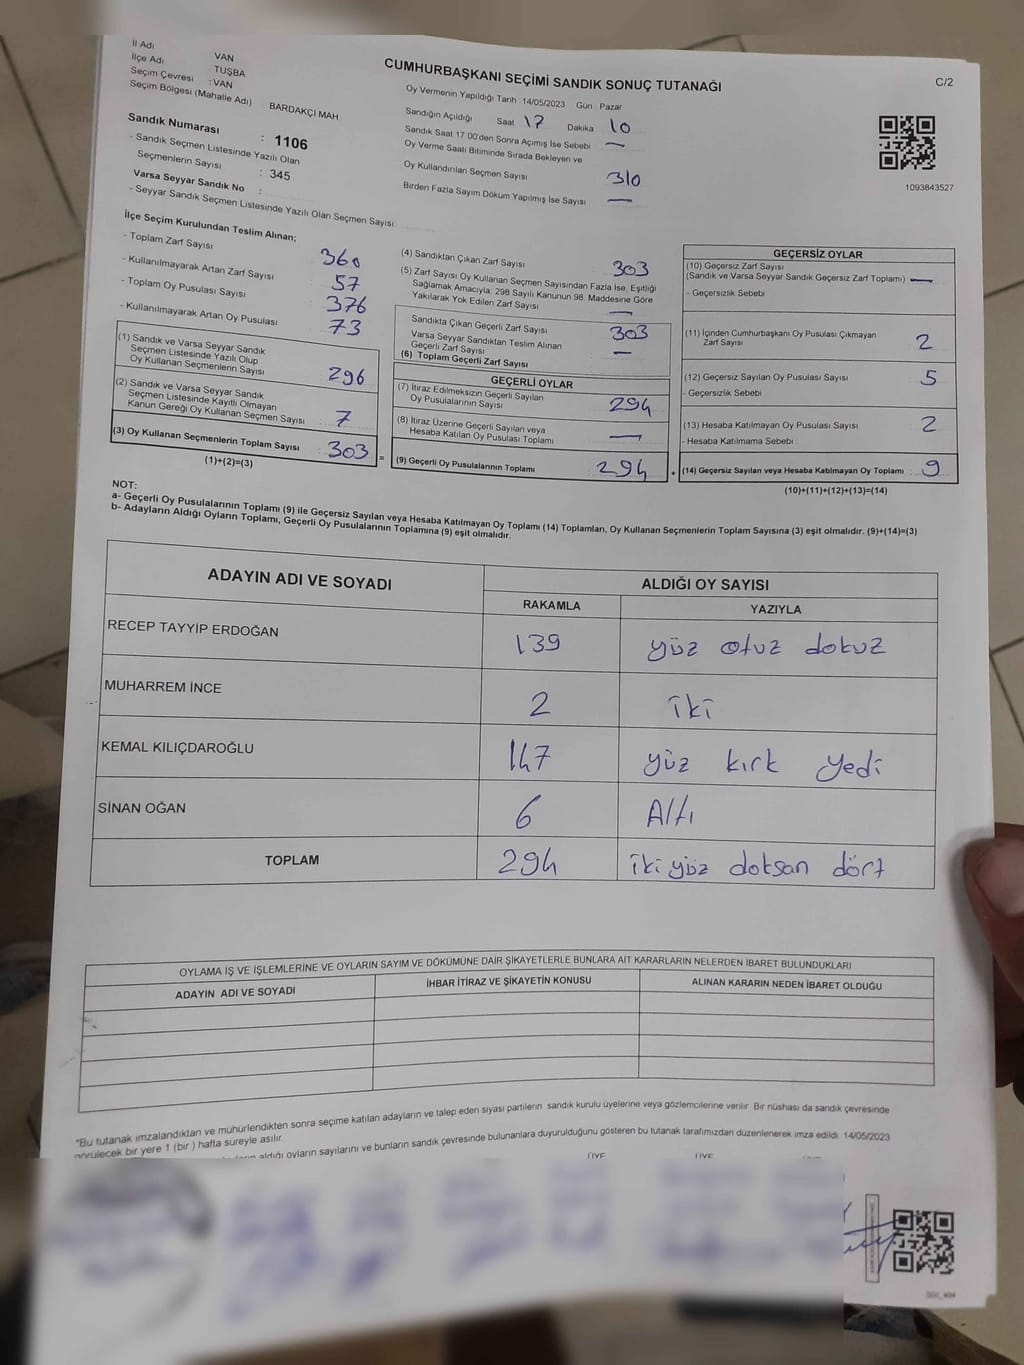 İl Adı VAN
İlçe Adı TUŞBA
Seçim Çevresi :VAN
Seçim Bölgesi (Mahalle Adı) BARDAKÇI MAH.
Sandık Numarası : 1106
- Sandık Seçmen Listesinde Yazılı Olan
Seçmenlerin Sayısı : 345
Varsa Seyyar Sandık No :
- Seyyar Sandık Seçmen Listesinde Yazılı Olan Seçmen Sayısı
CUMHURBAŞKANI SEÇİMİ SANDIK SONUÇ TUTANAĞI
C/2
Oy Vermenin Yapıldığı Tarih 14/05/2023 Gün Pazar
Sandığın Açıldığı Saat 17 Dakika 10
Sandık Saat 17 00'den Sonra Açımış İse Sebebi —
Oy Verme Saati Bitiminde Sırada Bekleyen ve
Oy Kullandırılan Seçmen Sayısı 310
Birden Fazla Sayım Döküm Yapılmış İse Sayısı —
1093843527
İlçe Seçim Kurulundan Teslim Alınan;
- Toplam Zarf Sayısı 360
- Kullanılmayarak Artan Zarf Sayısı 57
- Toplam Oy Pusulası Sayısı 376
- Kullanılmayarak Artan Oy Pusulası 73
(1) Sandık ve Varsa Seyyar Sandık
Seçmen Listesinde Yazılı Olup
Oy Kullanan Seçmenlerin Sayısı 296
(2) Sandık ve Varsa Seyyar Sandık
Seçmen Listesinde Kayıtlı Olmayan
Kanun Gereği Oy Kullanan Seçmen Sayısı 7
(3) Oy Kullanan Seçmenlerin Toplam Sayısı 303 =
(1)+(2)=(3)
(4) Sandıktan Çıkan Zarf Sayısı 303
(5) Zarf Sayısı Oy Kullanan Seçmen Sayısından Fazla İse, Eşitliği
Sağlamak Amacıyla, 298 Sayılı Kanunun 98. Maddesine Göre
Yakılarak Yok Edilen Zarf Sayısı —
Sandıkta Çıkan Geçerli Zarf Sayısı 303
Varsa Seyyar Sandıktan Teslim Alınan
Geçerli Zarf Sayısı —
(6) Toplam Geçerli Zarf Sayısı
GEÇERLİ OYLAR
(7) İtiraz Edilmeksizin Geçerli Sayılan
Oy Pusulalarının Sayısı 294
(8) İtiraz Üzerine Geçerli Sayılan veya
Hesaba Katılan Oy Pusulası Toplamı —
(9) Geçerli Oy Pusulalarının Toplamı 294
GEÇERSİZ OYLAR
(10) Geçersiz Zarf Sayısı
(Sandık ve Varsa Seyyar Sandık Geçersiz Zarf Toplamı) —
- Geçersizlik Sebebi
(11) İçinden Cumhurbaşkanı Oy Pusulası Çıkmayan
Zarf Sayısı 2
(12) Geçersiz Sayılan Oy Pusulası Sayısı 5
- Geçersizlik Sebebi
(13) Hesaba Katılmayan Oy Pusulası Sayısı 2
- Hesaba Katılmama Sebebi
+ (14) Geçersiz Sayılan veya Hesaba Katılmayan Oy Toplamı : 9
(10)+(11)+(12)+(13)=(14)
NOT:
a- Geçerli Oy Pusulalarının Toplamı (9) ile Geçersiz Sayılan veya Hesaba Katılmayan Oy Toplamı (14) Toplamları, Oy Kullanan Seçmenlerin Toplam Sayısına (3) eşit olmalıdır. (9)+(14)=(3)
b- Adayların Aldığı Oyların Toplamı, Geçerli Oy Pusulalarının Toplamına (9) eşit olmalıdır.
ADAYIN ADI VE SOYADI ALDIĞI OY SAYISI
RAKAMLA YAZIYLA
RECEP TAYYİP ERDOĞAN 139 yüz otuz dokuz
MUHARREM İNCE 2 iki
KEMAL KILIÇDAROĞLU 147 yüz kırk yedi
SİNAN OĞAN 6 Altı
TOPLAM 294 iki yüz doksan dört
OYLAMA İŞ VE İŞLEMLERİNE VE OYLARIN SAYIM VE DÖKÜMÜNE DAİR ŞİKAYETLERLE BUNLARA AİT KARARLARIN NELERDEN İBARET BULUNDUKLARI
ADAYIN ADI VE SOYADI İHBAR İTİRAZ VE ŞİKAYETİN KONUSU ALINAN KARARIN NEDEN İBARET OLDUĞU
"Bu tutanak imzalandıktan ve mühürlendikten sonra seçime katılan adayların ve talep eden siyasi partilerin sandık kurulu üyelerine veya gözlemcilerine verilir Bir nüshası da sandık çevresinde
görülecek bir yere 1 (bir) hafta süreyle asılır.
aldığı oyların sayılarını ve bunların sandık çevresinde bulunanlara duyurulduğunu gösteren bu tutanak tarafımızdan düzenlenerek imza edildi 14/05/2023
ÜYE ÜYE